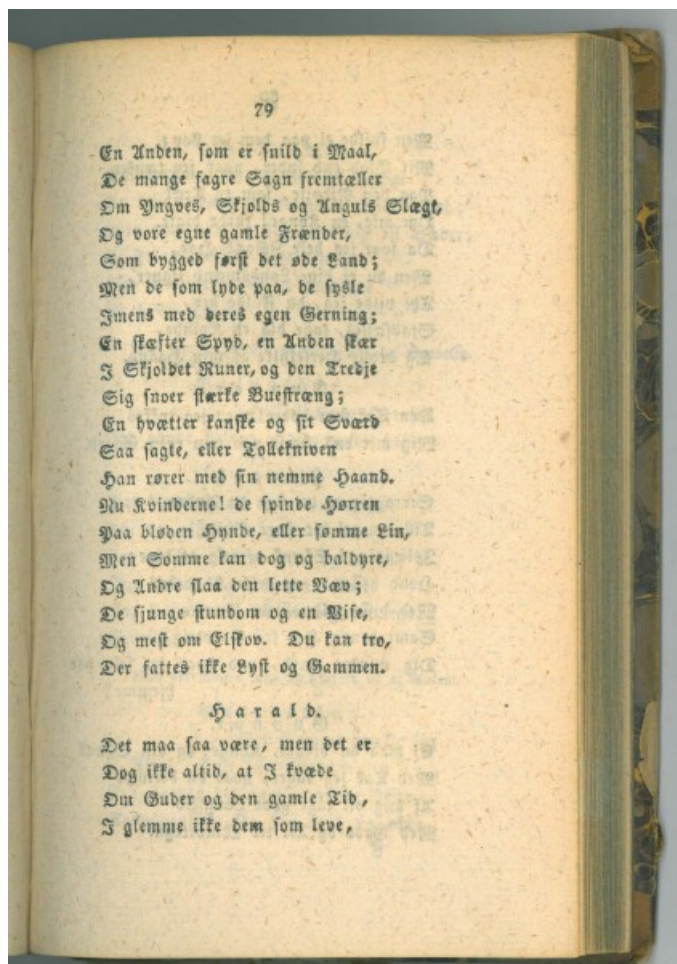 79
En Anden, som er snild i Maal,
De mange fagre Sagn fremtæller
Om Yngves, Skjolds og Anguls Slægt,
Og vore egne gamle Frænder,
Som bygged først det øde Land;
Men de som lyde paa, de sysle
Imens med deres egen Gerning;
En skæfter Spyd, en Anden skær
I Skjoldet Runer, og den Tredje
Sig snoer stærke Buestræng;
En hvætter kanske og sit Sværd
Saa sagte, eller Tollekniven
Han rører med sin nemme Haand.
Nu Kvinderne! de spinde Hørren
Paa bløden Hynde, eller sømme Lin,
Men Somme kan dog og baldyre,
Og Andre slaa den lette Væv;
De sjunge stundom og en Vise,
Og mest om Elskov. Du kan tro,
Der fattes ikke Lyst og Gammen.
Harald.
Det maa saa være, men det er
Dog ikke altid, at I kvæde
Om Guder og den gamle Tid,
I glemme ikke dem som leve,